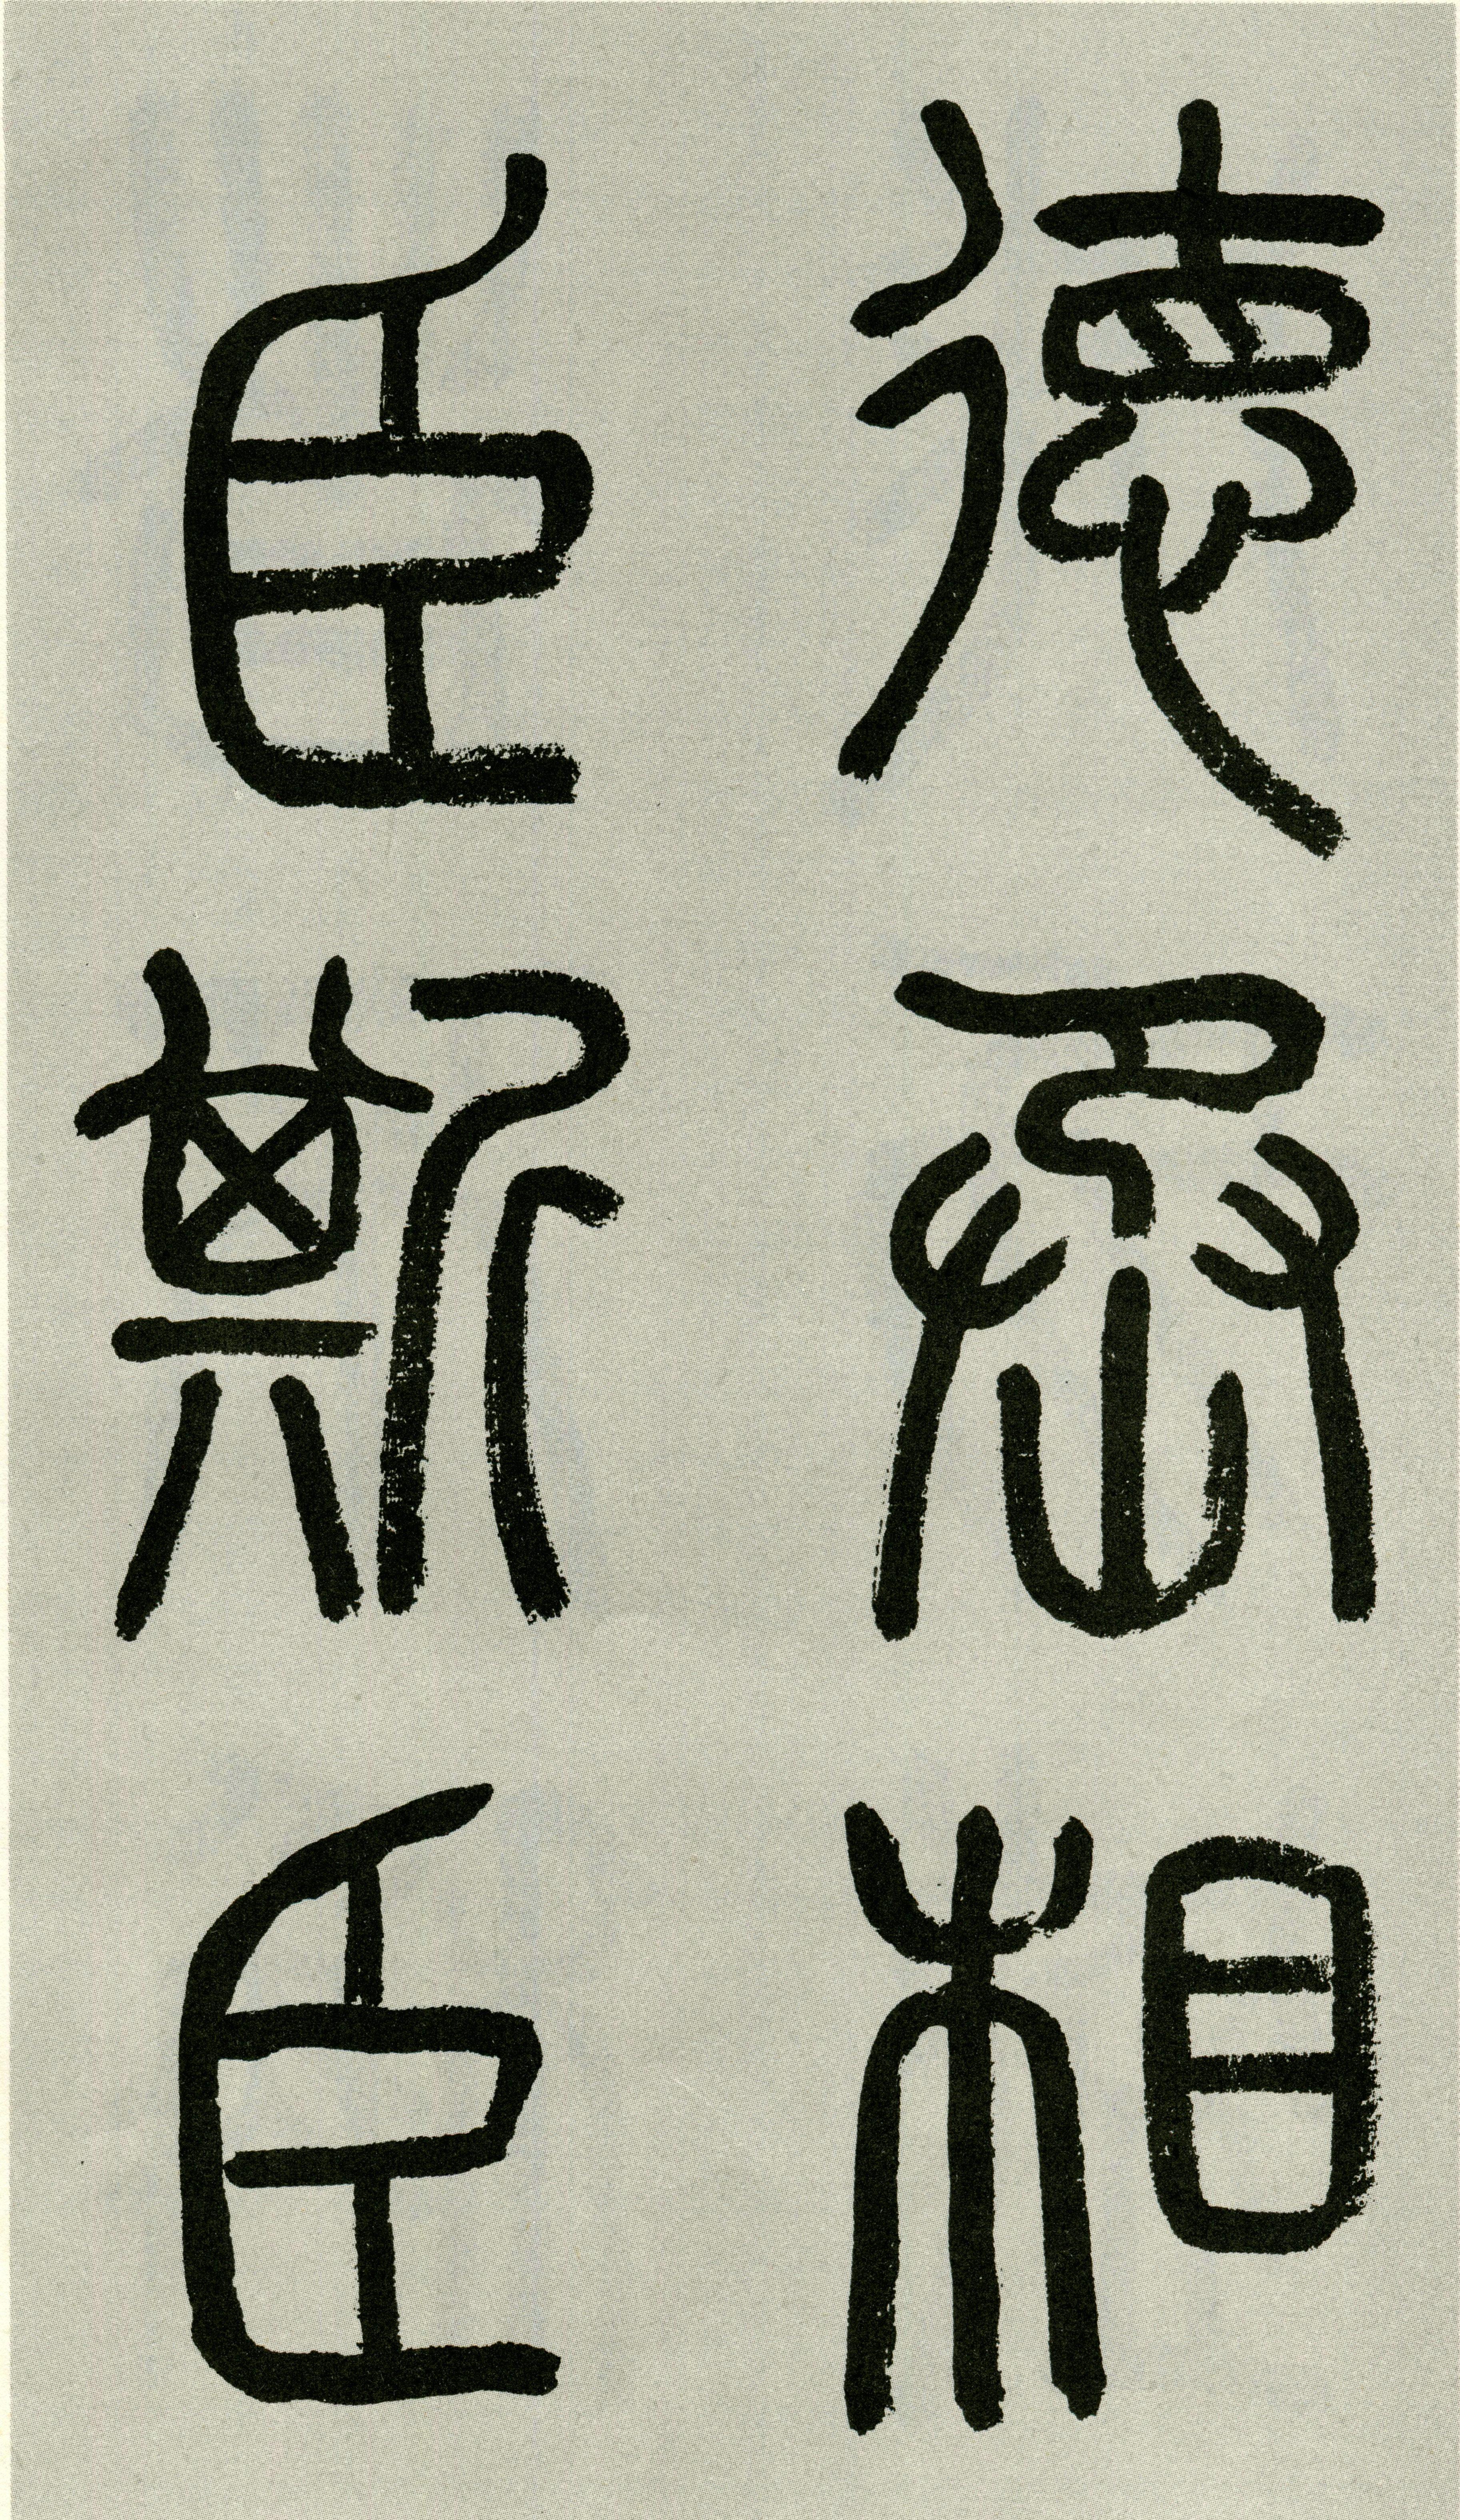 德丞相
臣斯臣